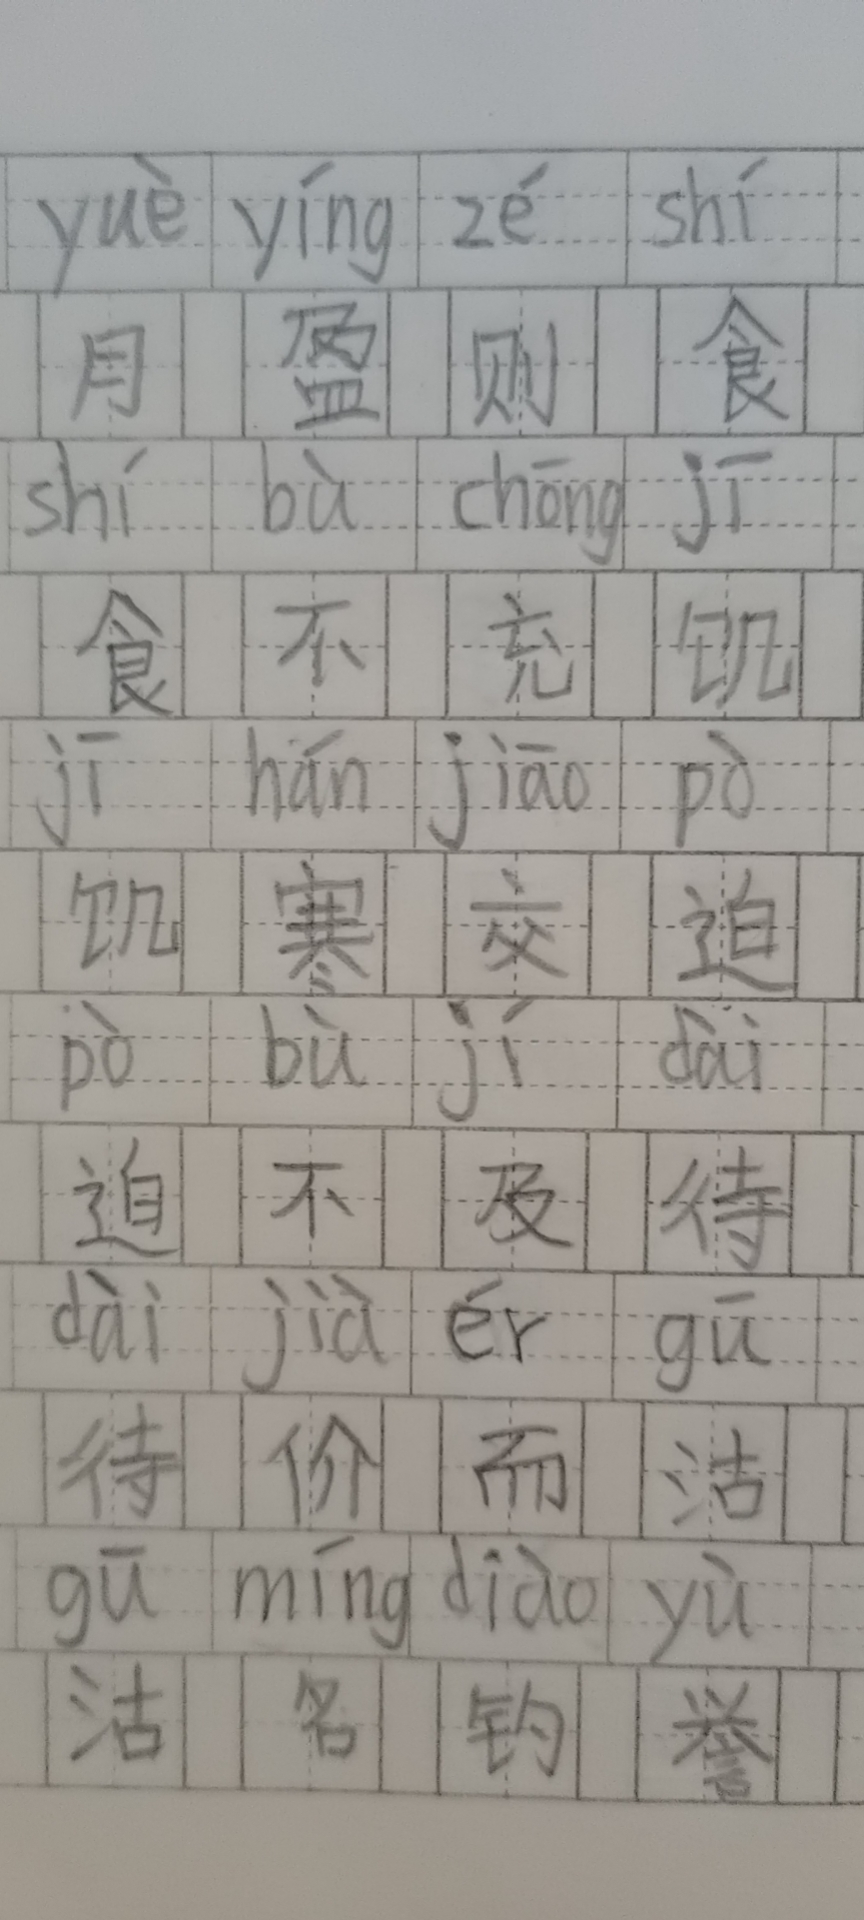 yuè yíng zé shí
月盈则食
shí bù chōng jī
食不充饥
jī hán jiāo pò
饥寒交迫
pò bù jí dài
迫不及待
dài jià ér gū
待价而沽
gū míng diào yù
沽名钓誉